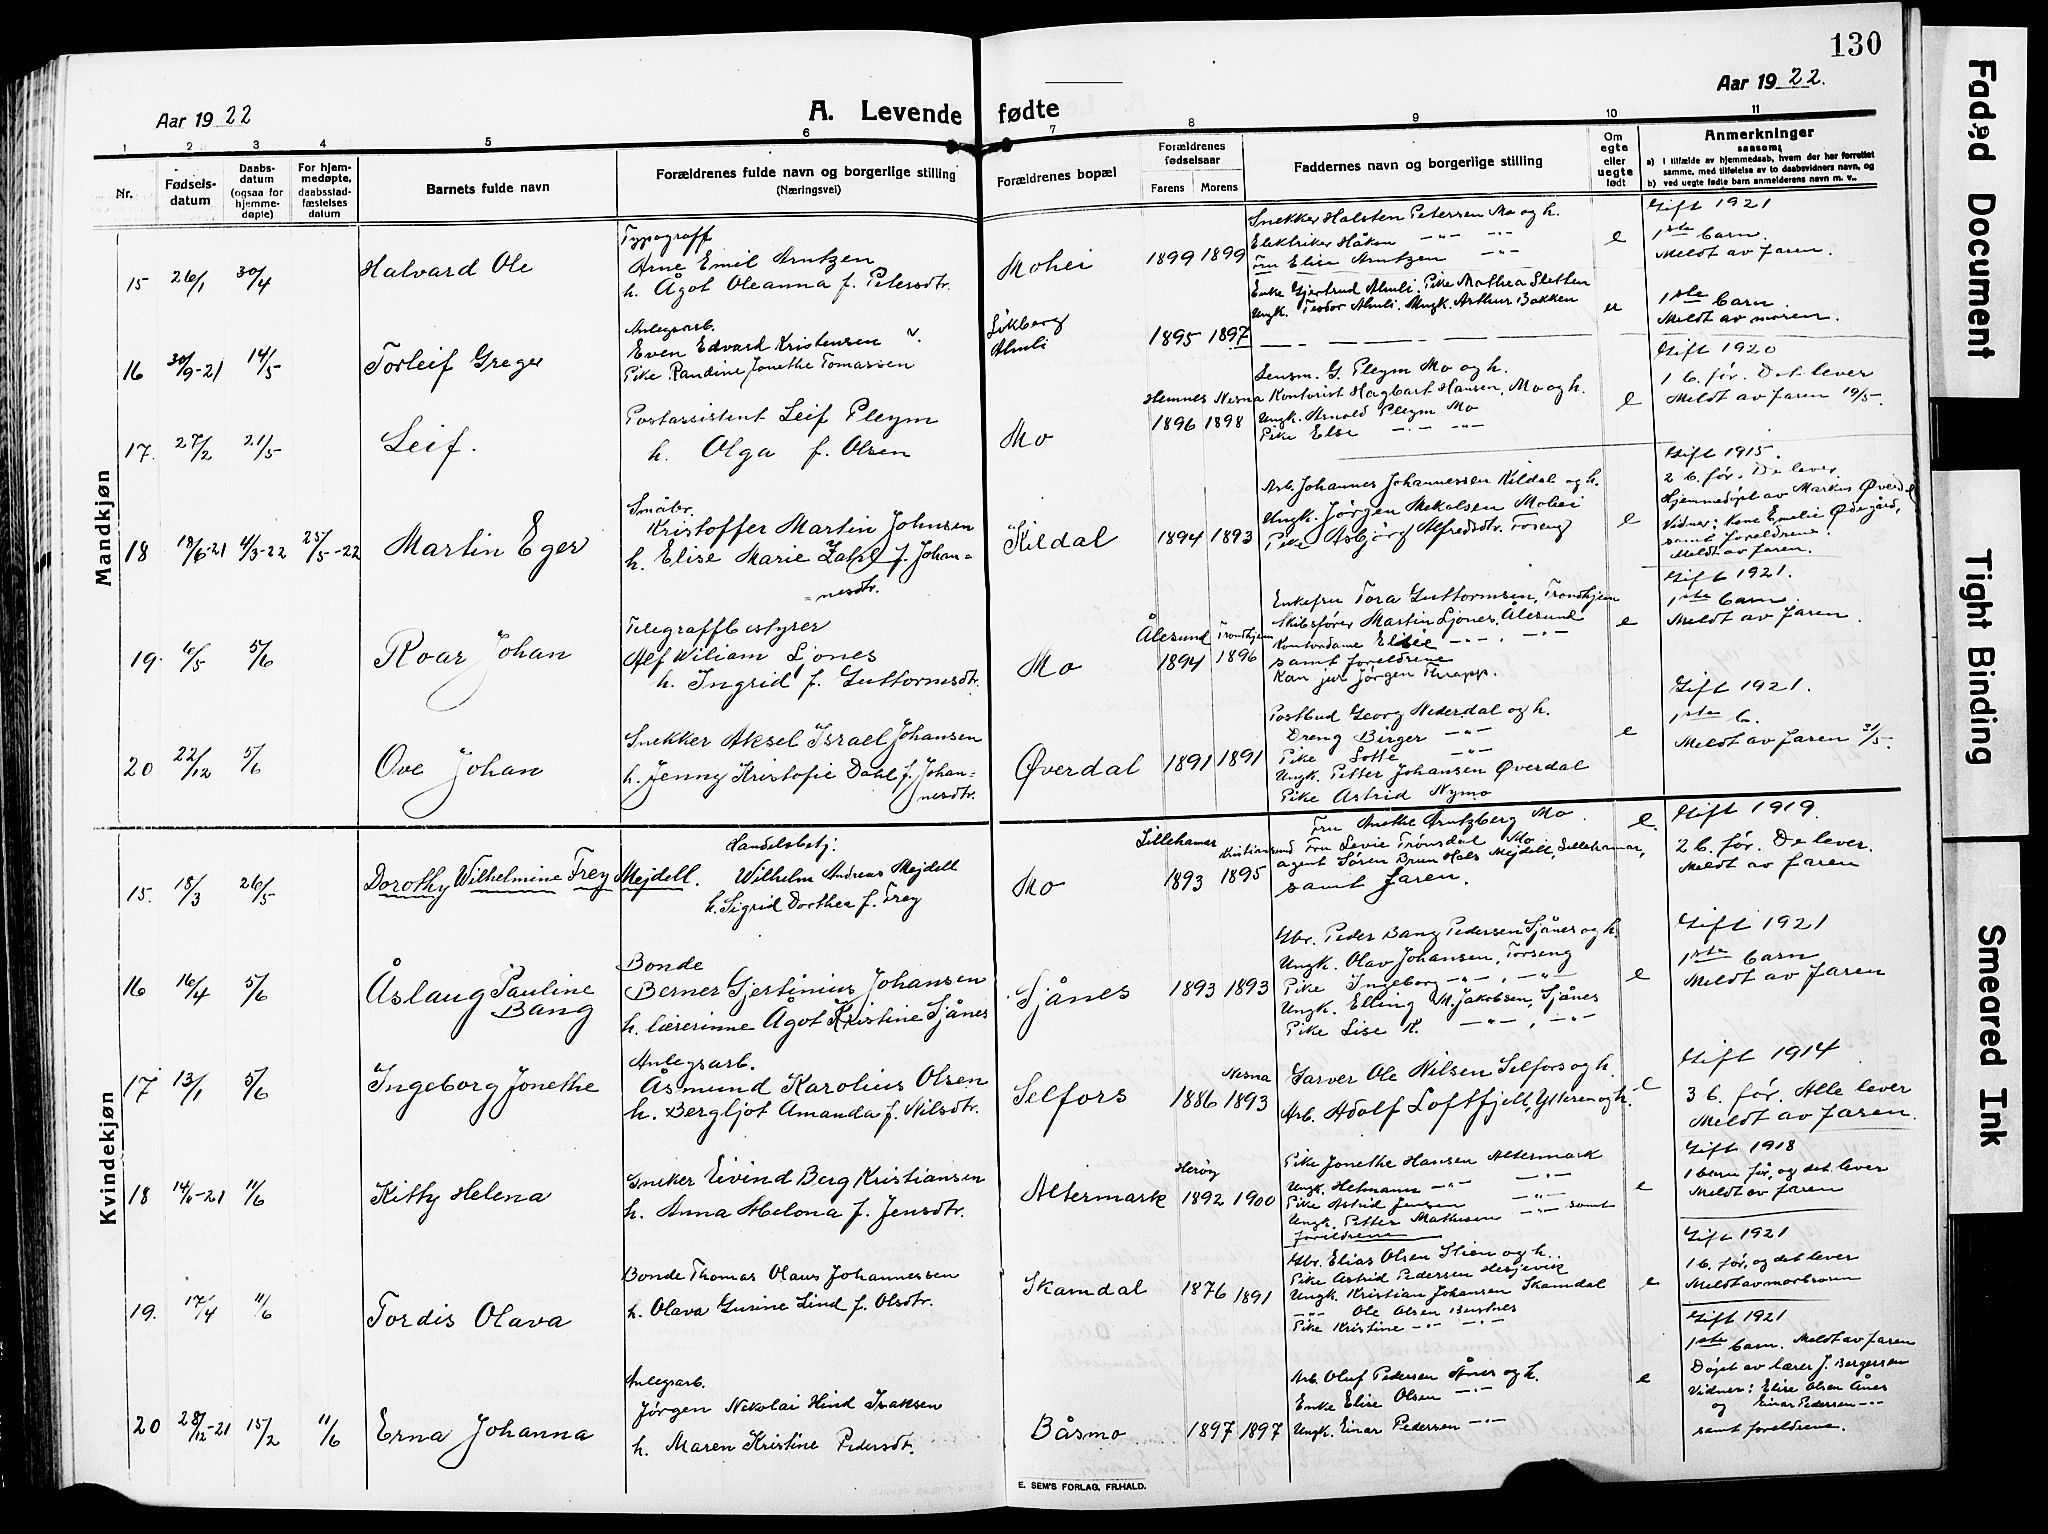 130
Aar 1922
A. Levende fødte
Aar 1922.
1 2 3 4 5 6 7 8 9 10 11
Nr.
Fødsels-
datum
Daabs-
datum
(ogsaa for
hjemme-
døpte)
For hjem-
medøpte,
daabsstad-
fæstelses
datum
Barnets fulde navn
Forældrenes fulde navn og borgerlige stilling
(Næringsvei)
Forældrenes bopæl
Forældrenes
fødselsaar
Farens Morens
Faddernes navn og borgerlige stilling
Om
egte
eller
uegte
født
Anmerkninger
saasom;
a) I tilfælde av hjemmedaab, hvem der har forrettet
samme, med tilføielse av to daabsvidners navn, og
b) ved uegte fødte barn anmelderens navn m. v..
Mandkjøn
15 26/1 30/4 Halvard Ole
Typograff
Arne Emil Arntzen
h. Ågot Oleanna f. Petersdtr.
Mohei 1899 1899
Snekker Halsten Petersen Mo og h.
Elektriker Håkon -"- -"-
Fru Elise Arntzen -"-
e
Gift 1921
1ste barn.
Meldt av faren.
16 30/9-21 14/5 Torleif Greger
Anlegsarb.
Even Edvard Kristensen
Pike Randine Jonethe Tomassen
Almli
1895 1897
Enke Gjertrud Almli. Pike Mathea Sletten
Ungk. Teodor Almli. Ungk. Arthur Bakken
ue
1ste barn.
Meldt av moren.
17. 27/2 21/5 Leif.
Postassistent Leif Pleym
h. Olga f. Olsen
Mo
Hemnes Nesna
1896 1898
Lensm. G. Pleym Mo og h.
Kontorist Hagbart Hansen, Mo og h.
Ungk. Arnold Pleym Mo
Pike Else -"- -"-
e
Gift 1920
1 b. før. Det lever
Meldt av faren 19/5.
18 18/6-21 4/3-22 25/5-22 Martin Eger
Småbr.
Kristoffer Martin Johnsen
h. Elise Marie Zahl f. Johan-
=nesdtr.
Kildal 1894 1893
Arb. Johannes Johannessen Kildal og h.
Ungk. Jørgen Mekalsen Mohei
Pike Asbjørg Alfredsdtr. Toseng
e
Gift 1915.
2 b. før. De lever
Hjemmedøpt av Markus Øverdal
Vidner: Kone Emelie Ødegård,
samt foreldrene.
Meldt av faren.
19. 6/5 5/6 Roar Johan
Telegraffbestyrer
Alf Wiliam Ljones
h. Ingrid f. Guttormsdtr.
Mo
Ålesund Trondhjem
1894 1896
Enkefru Tora Guttormsen, Trondhjem
Skibsfører Martin Ljones, Ålesund
Kontordame Elsie -"- , -"-
samt foreldrene
Kan. jur Jørgen Thrapp.
e
Gift 1921.
1ste barn
Meldt av faren.
20 22/12 5/6 Ove Johan
Snekker Aksel Israel Johansen
h. Jenny Kristofie Dahl f. Johan-
nesdtr.
Øverdal 1891 1891
Postbud Georg Nederdal og h.
Dreng Birger -"-
Pike Lotte -"-
Ungk. Petter Johansen Øverdal
Pike Astrid Nymo
e
Gift 1921.
1ste b.
Meldt av faren 31/5.
Kvindekjøn
15. 18/3 26/5 Dorothy Wilhelmine Frey Mejdell.
Handelsbetj.
Wilhelm Andreas Mejdell
h. Sigrid Dorthea f. Frey
Mo
Lillehamar Kristiansund
1893 1895
Fru Anethe Arntzberg Mo.
Fru Levie Trønsdal Mo
agent Søren Brun Hals Mejdell, Lillehamar,
samt faren.
e.
Gift 1919.
2 b. før. De lever.
Meldt av faren
16 16/4 5/6 Åslaug Pauline
Bang
Bonde
Berner Gjertinius Johansen
h. lærerinne Ågot Kristine Sjånes
Sjånes 1893 1893
Gbr. Peder Bang Pedersen Sjånes og h.
Ungk. Olav Johansen, Torseng
Pike Ingeborg -"- , -"-
Ungk. Elling M. Jakobsen, Sjånes
Pike Lise K. -"- , -"-
e
Gift 1921
1ste barn
Meldt av faren
17 13/1 5/6 Ingeborg Jonethe
Anlegsarb.
Åsmund Karolius Olsen
h. Bergljot Amanda f. Nilsdtr.
Selfors
Nesna
1886 1893
Garver Ole Nilsen Selfors og h.
Arb. Adolf Loftfjell, Ytteren og h.
e
Gift 1914
3 b. før. Alle lever
Meldt av faren.
18 14/6-21 11/6 Kitty Helena
Sneker Eivind Berg Kristiansen
h. Anna Helona f. Jensdtr.
Altermark
Herøy
1892 1900
Pike Jonethe Hansen Altermark
Ungk. Hetmann -"- -"-
Pike Astrid Jensen -"-
Ungk. Petter Mathisen -"- samt
foreldrene
e
Gift 1918
1 barn før, og det lever
Meldt av faren
19. 17/4 11/6 Tordis Olava
Bonde Thomas Olaus Johannessen
h. Olava Gusine Lind f. Olsdtr.
Skamdal 1876 1891
Gbr. Elias Olsen Stien og h.
Pike Astrid Pedersen Hesjevik
Ungk. Kristian Johansen Skamdal
-"- Ole Olsen Bustnes
Pike Kristine -"- -"-
e
Gift 1921
1 b. før, og det lever
Meldt av morbroren
20 28/12-21 15/2 11/6 Erna Johanna
Anlegsarb.
Jørgen Nikolai Hind Isaksen
h. Maren Kristine Pedersdt.
Båsmo 1897 1897
Arb. Oluf Pedersen Ånes og h.
Enke Elise Olsen -"-
Ungk. Einar Pedersen -"-
e
Gift 1921
1ste barn. Meldt av faren
Døpt av lærer J. Bergersen
Vidner: Elise Olsen Ånes
og Einar Pedersen -"-
samt foreldrene.
E. SEM'S FORLAG, FR.HALD.
Faded Document
Tight Binding
Smeared Ink